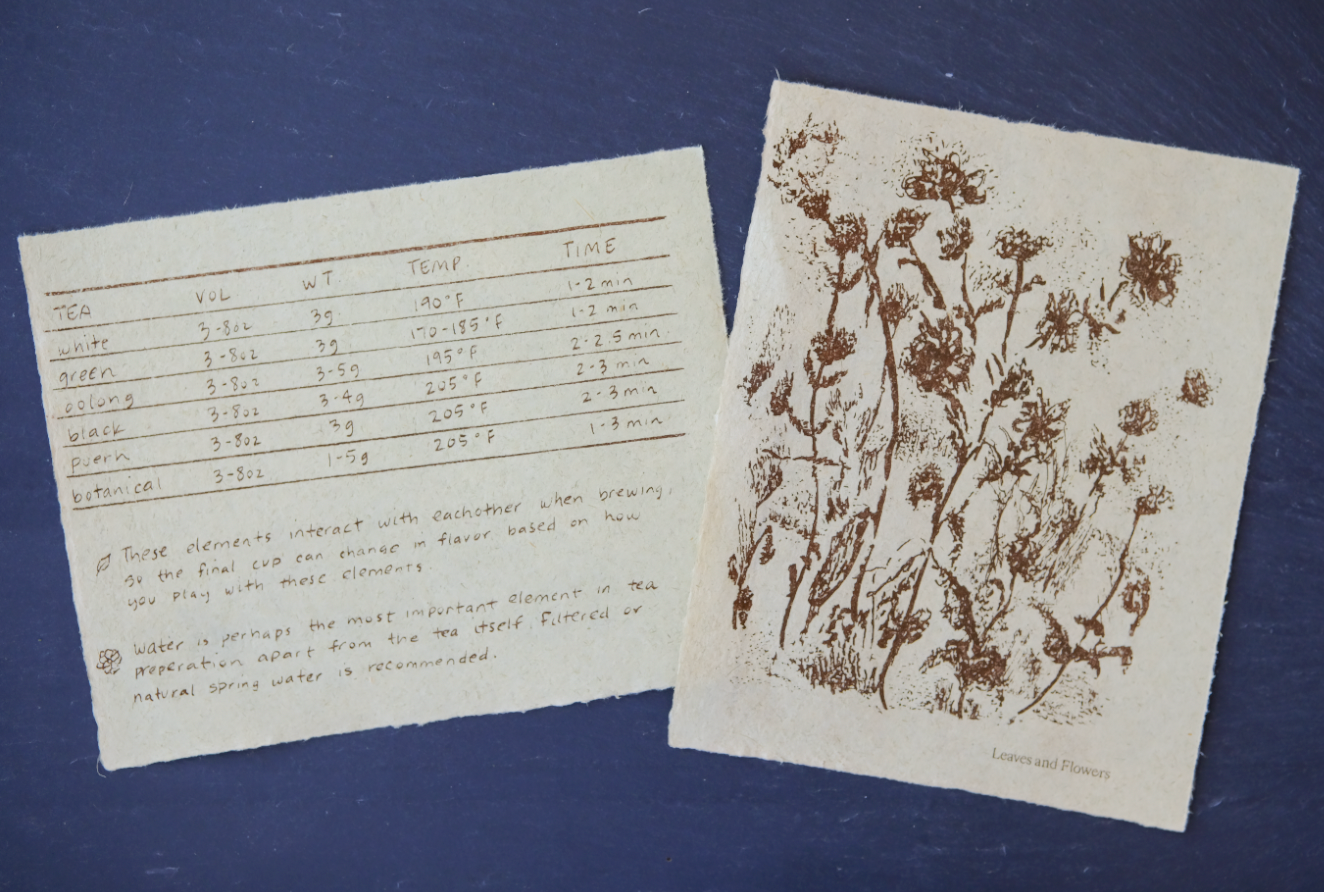 TEA VOL WT TEMP. TIME
white 3-8oz 3g 190°F 1-2 min
green 3-8oz 3g 170-185°F 1-2 min
oolong 3-8oz 3-5g 195°F 2-2.5 min.
black 3-8oz 3-4g 205°F 2-3 min
puerh 3-8oz 3g 205°F 2-3 min
botanical 3-8oz 1-5g 205°F 1-3 min
These elements interact with eachother when brewing,
so the final cup can change in flavor based on how
you play with these elements
Water is perhaps the most important element in tea
preperation apart from the tea itself. Filtered or
natural spring water is recommended.
Leaves and Flowers